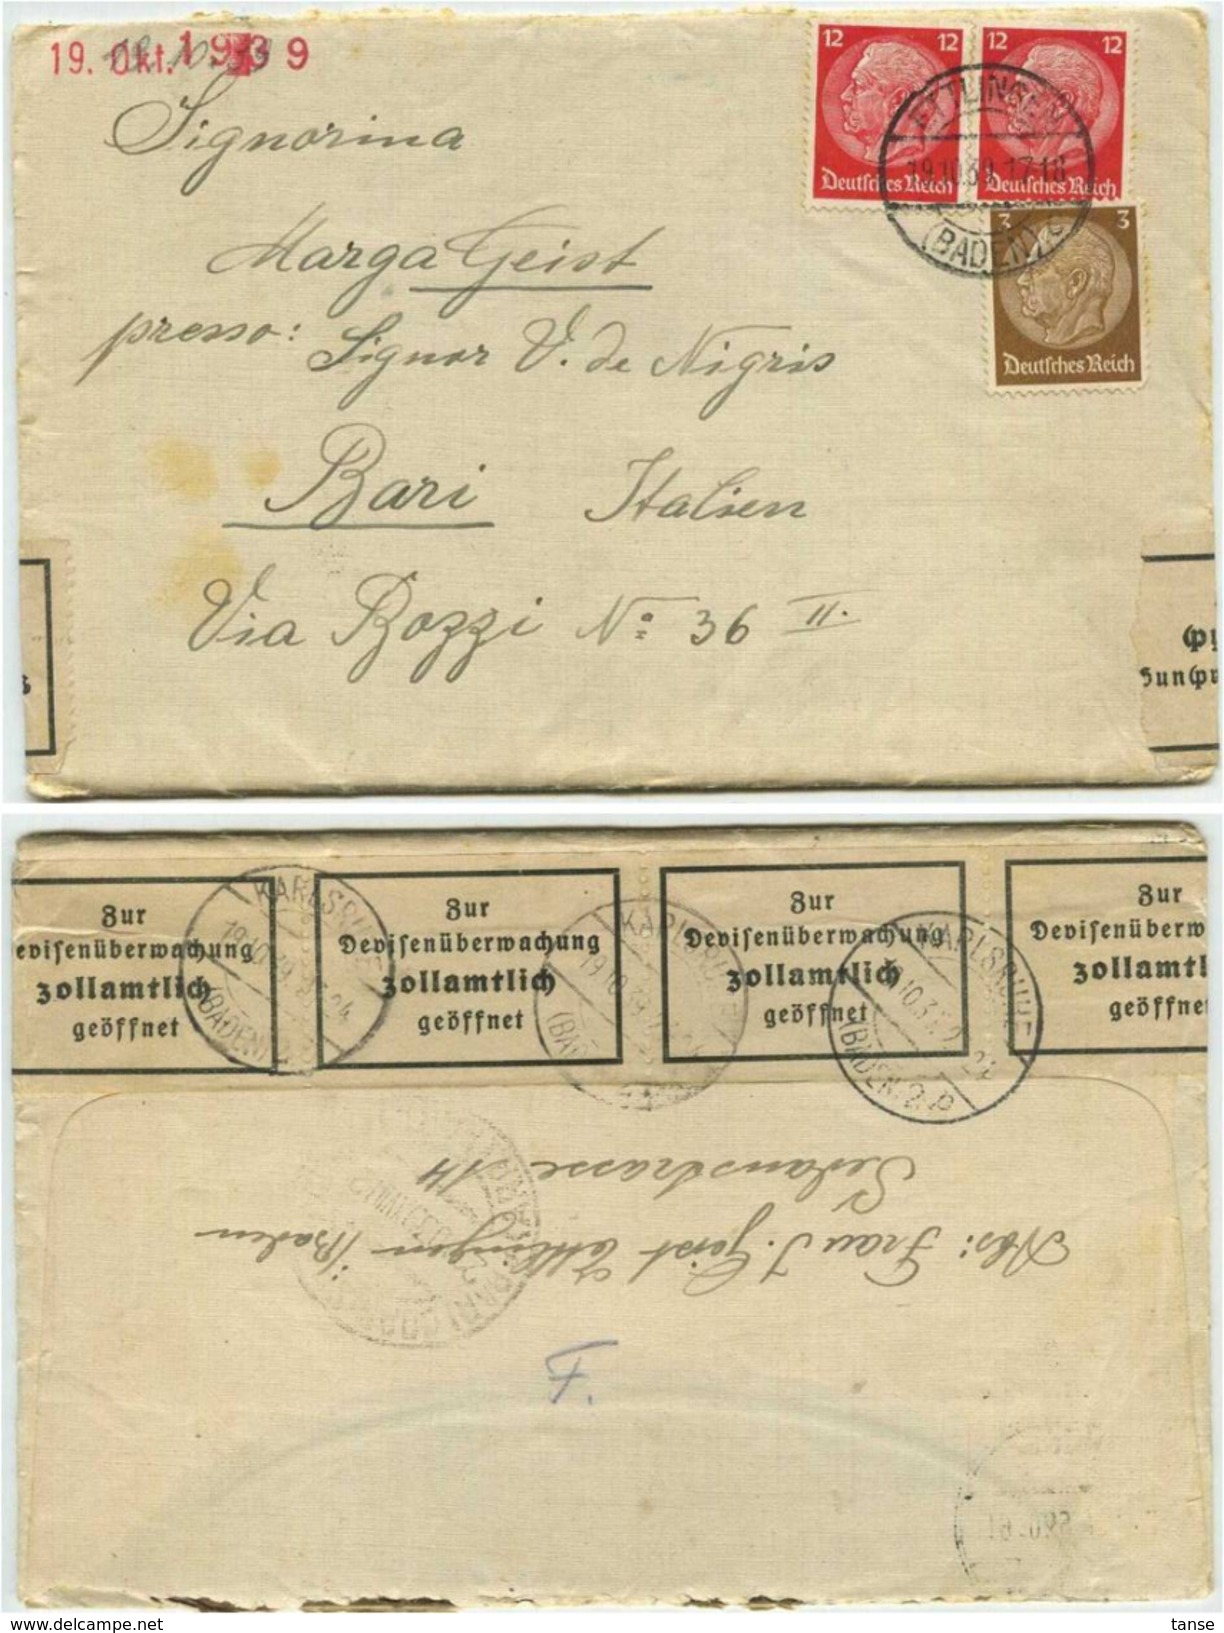 19. Okt. 1939
12 12
12 12
Deutsches Reich
Deutsches Reich
ETTLINGEN
19.10.39.17-18
(BADEN)
3 3
Deutsches Reich
Signorina
Marga Geist
presso: Signor V. de Nigris
Bari Italien
Via Bozzi No 36 II.
Zur
Devisenüberwachung
zollamtlich
geöffnet
Zur
Devisenüberwachung
zollamtlich
geöffnet
Zur
Devisenüberwachung
zollamtlich
geöffnet
Zur
Devisenüberw
zollamtl
geöffnet
KARLSRUHE
(BADEN)
KARLSRUHE
KARLSRUHE
(BADEN) 2 p
Abs: Frau J. Geist Ettlingen /Baden
Sedanstrasse 14
F.
delcampe.net
tanse